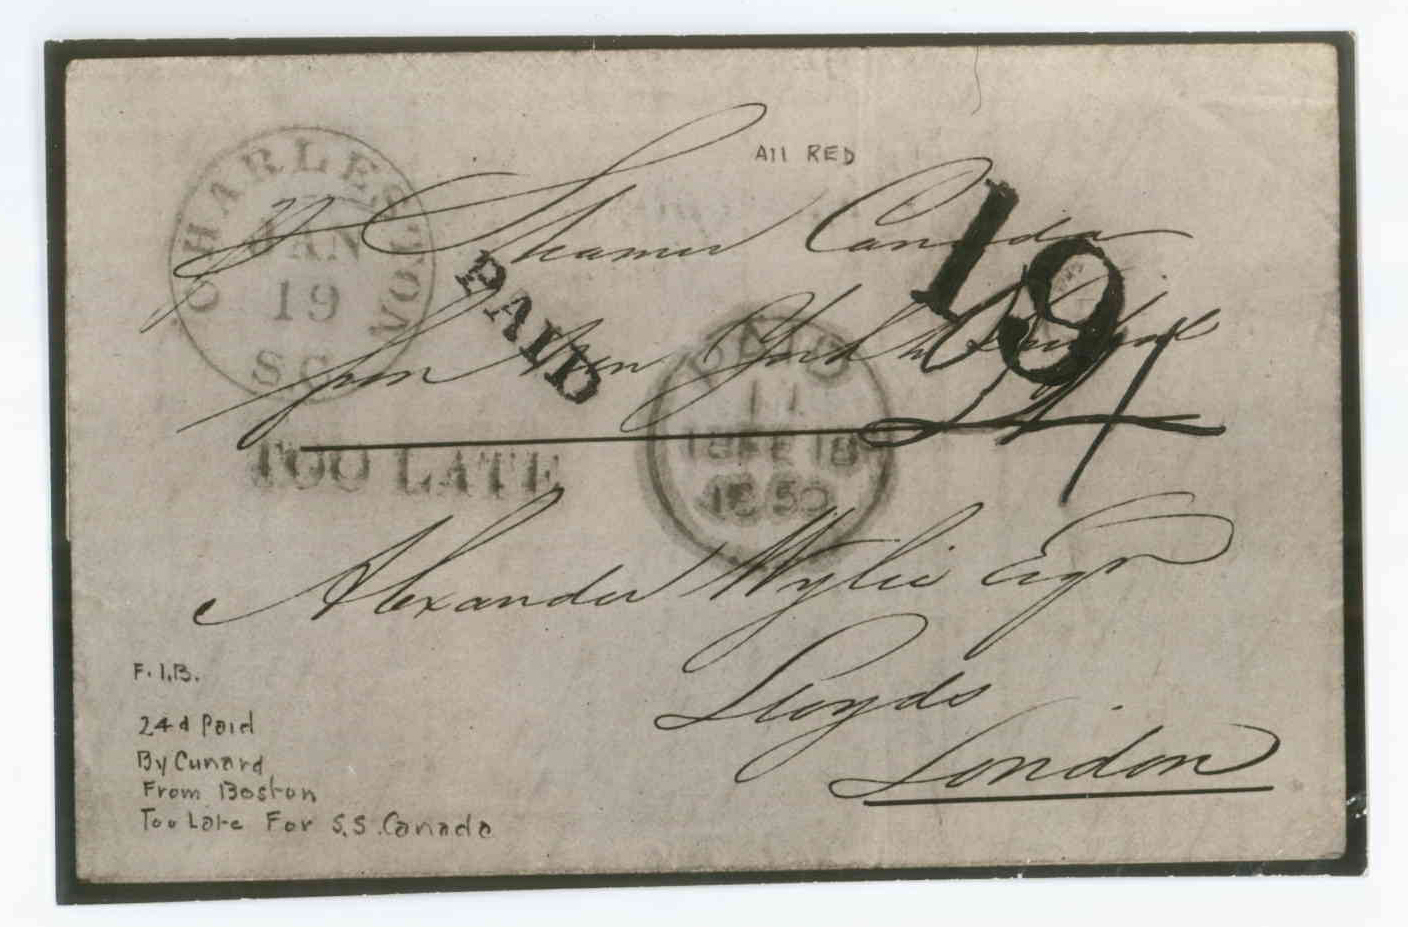 All RED
CHARLESTON
JAN
19
S.C.
PAID
19
pr Steamer Canada
from New York to Liverpool
24
TOO LATE
PAID
11
18 FE 18
1850
Alexander Wylie Esqr
Lloyds
London
F.I.B.
24¢ Paid
By Cunard
From Boston
Too Late For S.S. Canada